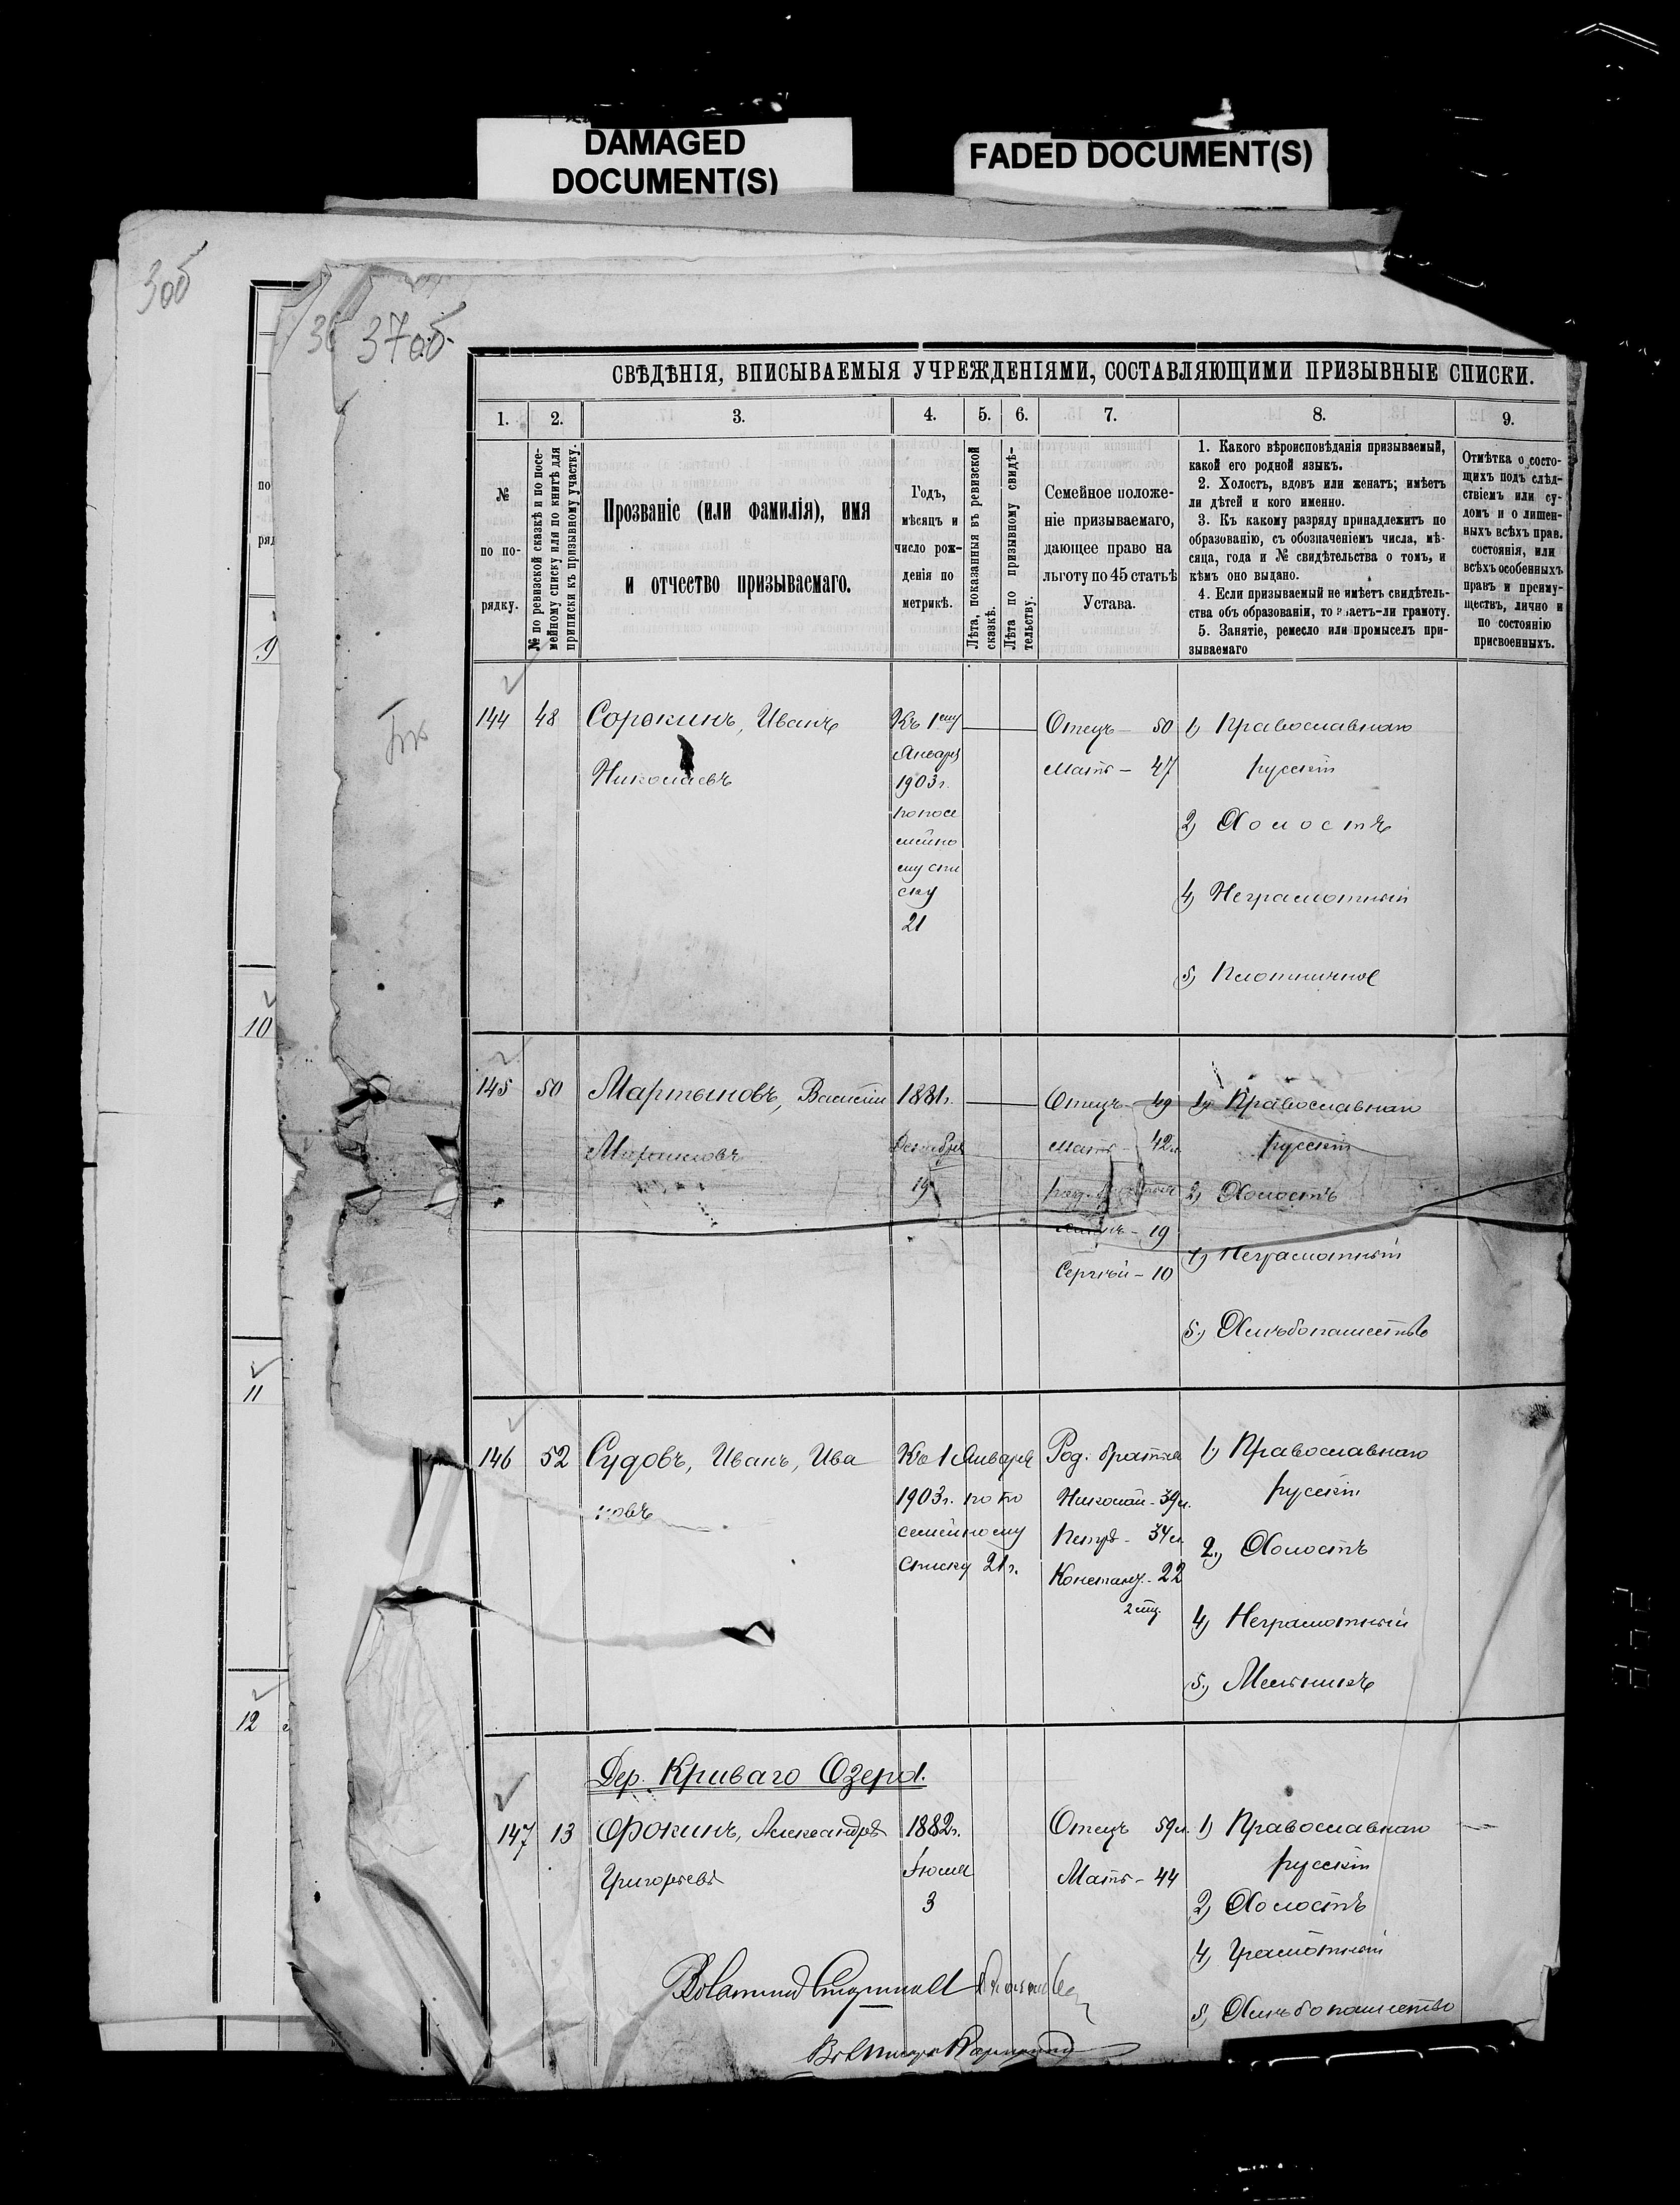 DAMAGED
DOCUMENT(S)
FADED DOCUMENT(S)
30б
37об.
СВѢДѢНІЯ, ВПИСЫВАЕМЫЯ УЧРЕЖДЕНІЯМИ, СОСТАВЛЯЮЩИМИ ПРИЗЫВНЫЕ СПИСКИ.
1. 2. 3. 4. 5. 6. 7. 8. 9.
№
по по-
рядку.
№ по ревизской сказкѣ и по посе-
мейному списку или по книгѣ для
приписки къ призывному участку.
Прозваніе (или фамилія), имя
и отчество призываемаго.
Годъ,
мѣсяцъ и
число рож-
денія по
метрикѣ.
Лѣта, показанныя въ ревизской
сказкѣ.
Лѣта по призывному свидѣ-
тельству.
Семейное положе-
ніе призываемаго,
дающее право на
льготу по 45 статьѣ
Устава.
1. Какого вѣроисповѣданія призываемый,
какой его родной языкъ.
2. Холостъ, вдовъ или женатъ; имѣетъ
ли дѣтей и кого именно.
3. Къ какому разряду принадлежитъ по
образованію, съ обозначеніемъ числа, мѣ-
сяца, года и № свидѣтельства о томъ, и
кѣмъ оно выдано.
4. Если призываемый не имѣетъ свидѣтель-
ства объ образованіи, то знаетъ-ли грамоту.
5. Занятіе, ремесло или промыселъ при-
зываемаго
Отмѣтка о состо-
щихъ подъ слѣд-
ствіемъ или су-
домъ и о лишен-
ныхъ всѣхъ прав.
состоянія, или
всѣхъ особенныхъ
правъ и преиму-
ществъ, лично и
по состоянію
присвоенныхъ.
9
10
11
12
144 48 Сорокинъ, Иванъ
Николаевъ
Къ 1му
Января
1903г.
по посе
мейно
му спи
ску
21
Отецъ — 50
Мать — 47
1) Православнаго
русскій
2) Холостъ
4) Неграмотный
5) Плотничное
145 50 Мартыновъ, Василій
1881г.
Декабря
19
Отецъ — 49
Мать — 42л.
19
Сергѣй — 10
1) Православнаго
русскій
2) Холостъ
4) Неграмотный
5) Хлѣбопашество
146 52 Судовъ, Иванъ, Ива
новъ
Къ 1 Января
1903г. по по
семейному
списку 21г.
Род. братья
Николай - 39л.
Петръ - 34л.
Констант. - 22
1) Православнаго
русскій
2) Холостъ
4) Неграмотный
5) Мельникъ
Дер. Криваго Озера.
147 13 Фокинъ, Александръ
Григорьевъ
1882г.
Іюля
3
Отецъ 59л.
Мать - 44
1) Православнаго
русскій
2) Холостъ
4) Грамотный
5) Хлѣбопашество